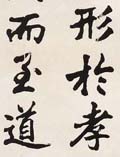 形於孝
而至道